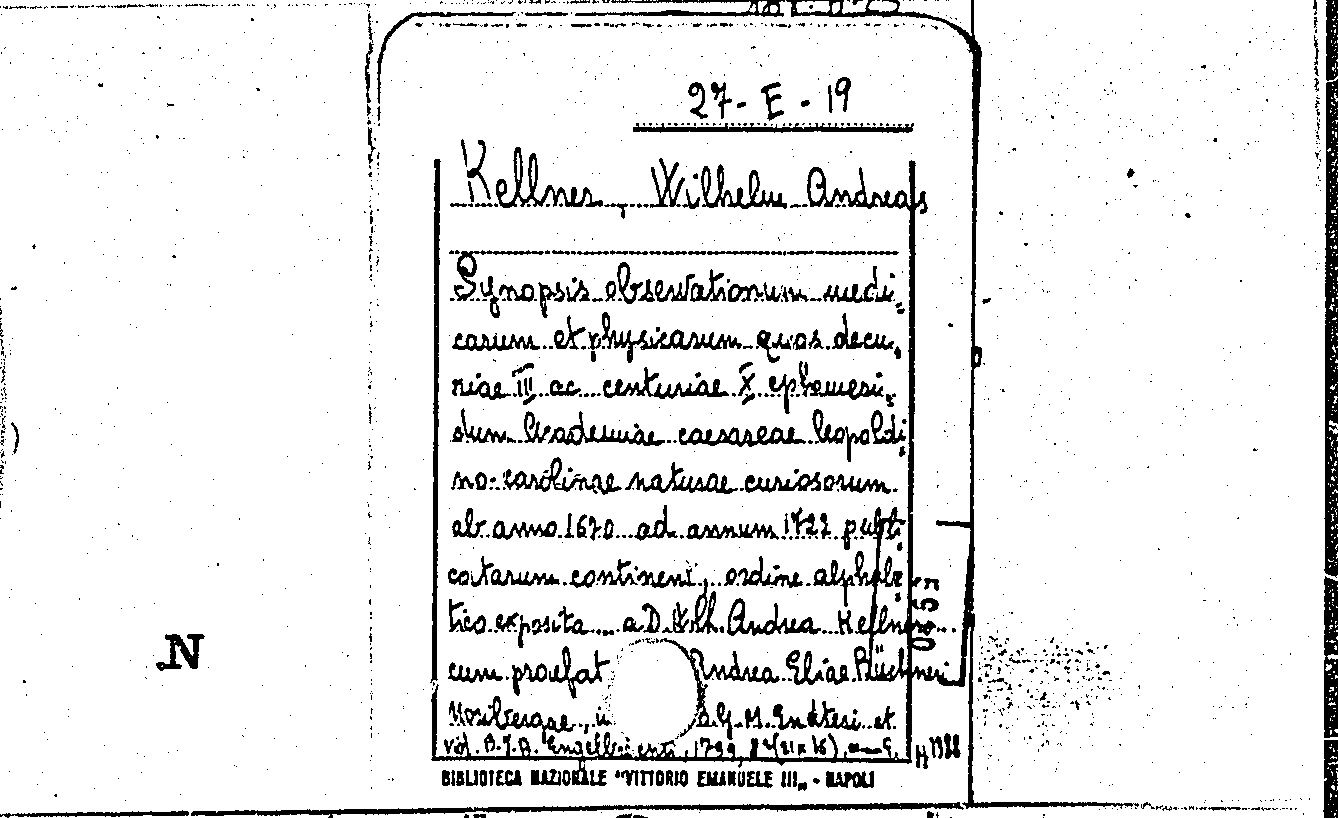 27-E-19
Kellner, Wilhelm Andreas
Synopsis observationum medi,
carum et physicarum quas decu,
riae III ac centuriae X ephemeri,
dum Academiae caesareae leopoldi,
no-carolinae naturae curiosorum
ab anno 1670 ad annum 1722 publi,
catarum continent, ordine alphabe,
tico exposita a D. Wilh. Andrea Kellnero
cum praefat Andrea Eliae Büchneri
Noribergae, a G. M. Endteri et
vid. B. J. A. 8° (21x16)
BIBLIOTECA NAZIONALE "VITTORIO EMANUELE III„ - NAPOLI
N